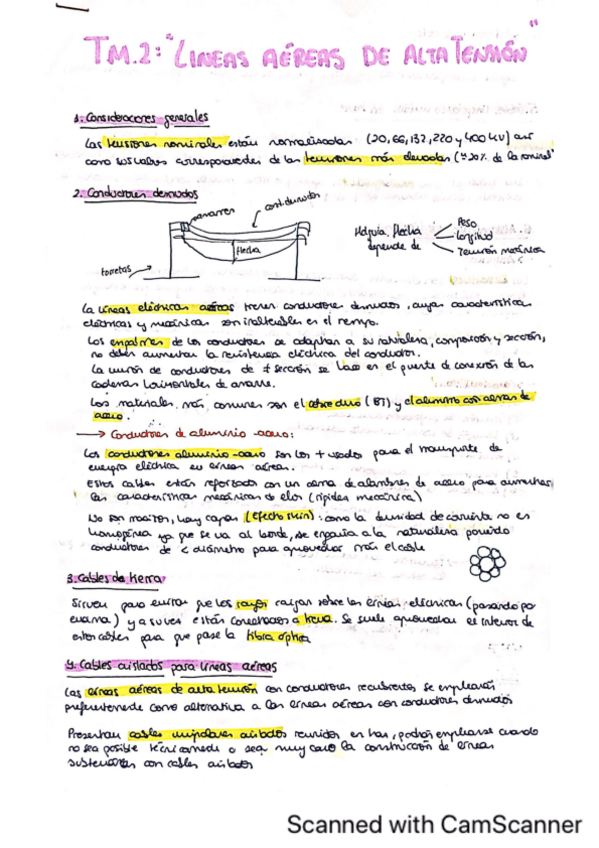 TM.2: "LINEAS AÉREAS DE ALTA TENSIÓN"
1. Consideraciones generales
Las tensiones nominales están normalizadas (20, 66, 132, 220 y 400 kV) así
como los valores correspondientes de las tensiones más elevadas (≈20% de la nominal)
2. Conductores desnudos
amarres
cond. desnudos
flecha
torretas
flecha
depende de
Peso
longitud
Tensión mecánica
La líneas eléctricas aéreas tienen conductores desnudos, cuyas características
eléctricas y mecánicas son inalterables en el tiempo.
Los empalmes de los conductores se adaptan a su naturaleza, composición y sección,
no deben aumentar la resistencia eléctrica del conductor.
La unión de conductores de ≠ sección se hace en el puente de conexión de las
cadenas horizontales de amarre.
Los materiales más comunes son el cobre duro (BT) y el aluminio con almas de
acero.
→ Conductores de aluminio-acero:
Los conductores aluminio-acero son los + usados para el transporte de
energía eléctrica en líneas aéreas.
Estos cables están reforzados con un alma de alambres de acero para aumentar
las características mecánicas de ellos (rigidez mecánica)
No son macizos, hay capas (Efecto skin): como la densidad de corriente no es
homogénea ya que se va al borde, se engaña a la naturaleza poniendo
conductores de < diámetro para aprovechar más el cable
3. Cables de tierra
Sirven para evitar que los rayos caigan sobre las líneas eléctricas (pasando por
encima) y a su vez están conectados a tierra. Se suele aprovechar el interior de
estos cables para que pase la fibra óptica
4. Cables aislados para líneas aéreas
Las líneas aéreas de alta tensión con conductores recubiertos se emplearán
preferentemente como alternativa a las líneas aéreas con conductores desnudos
Presentan cables unipolares aislados reunidos en haz, podrán emplearse cuando
no sea posible técnicamente o sea muy caro la construcción de líneas
subterráneas con cables aislados
Scanned with CamScanner